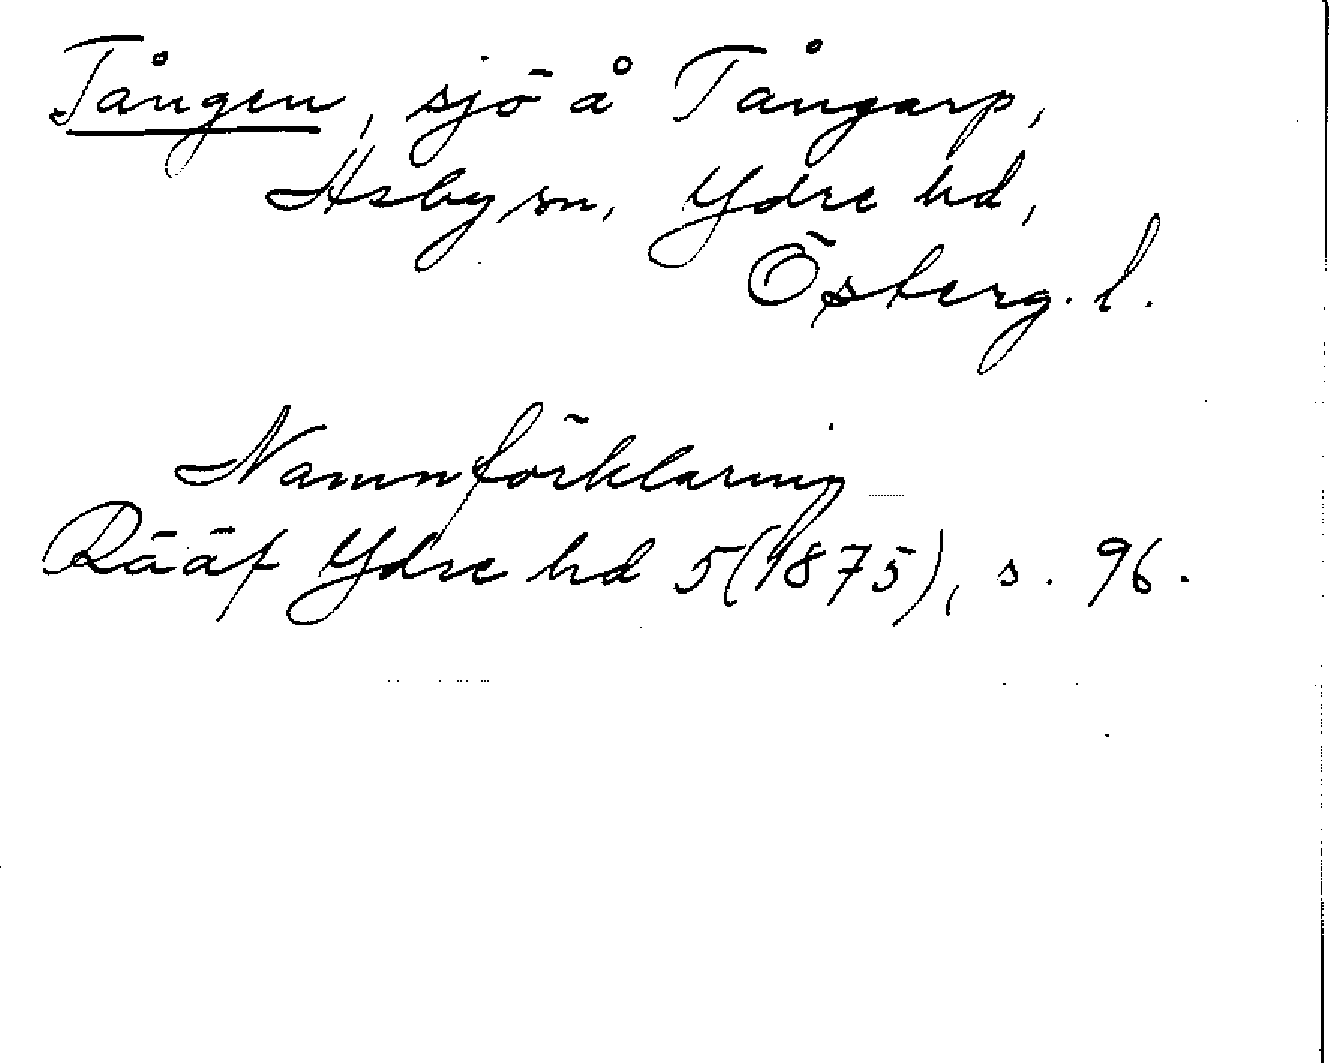 Tången, sjö å Tångarp,
Asby sn, Ydre hd,
Österg. l.
Namnförklaring
Rääf Ydre hd 5(1875), s. 96.